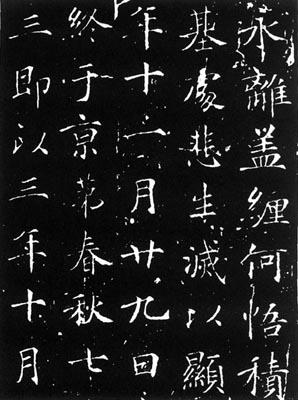 永離盖纏何悟積
基處悲生滅以顯
年十一月廿九日
終于京苐春秋七
三即以三年十月